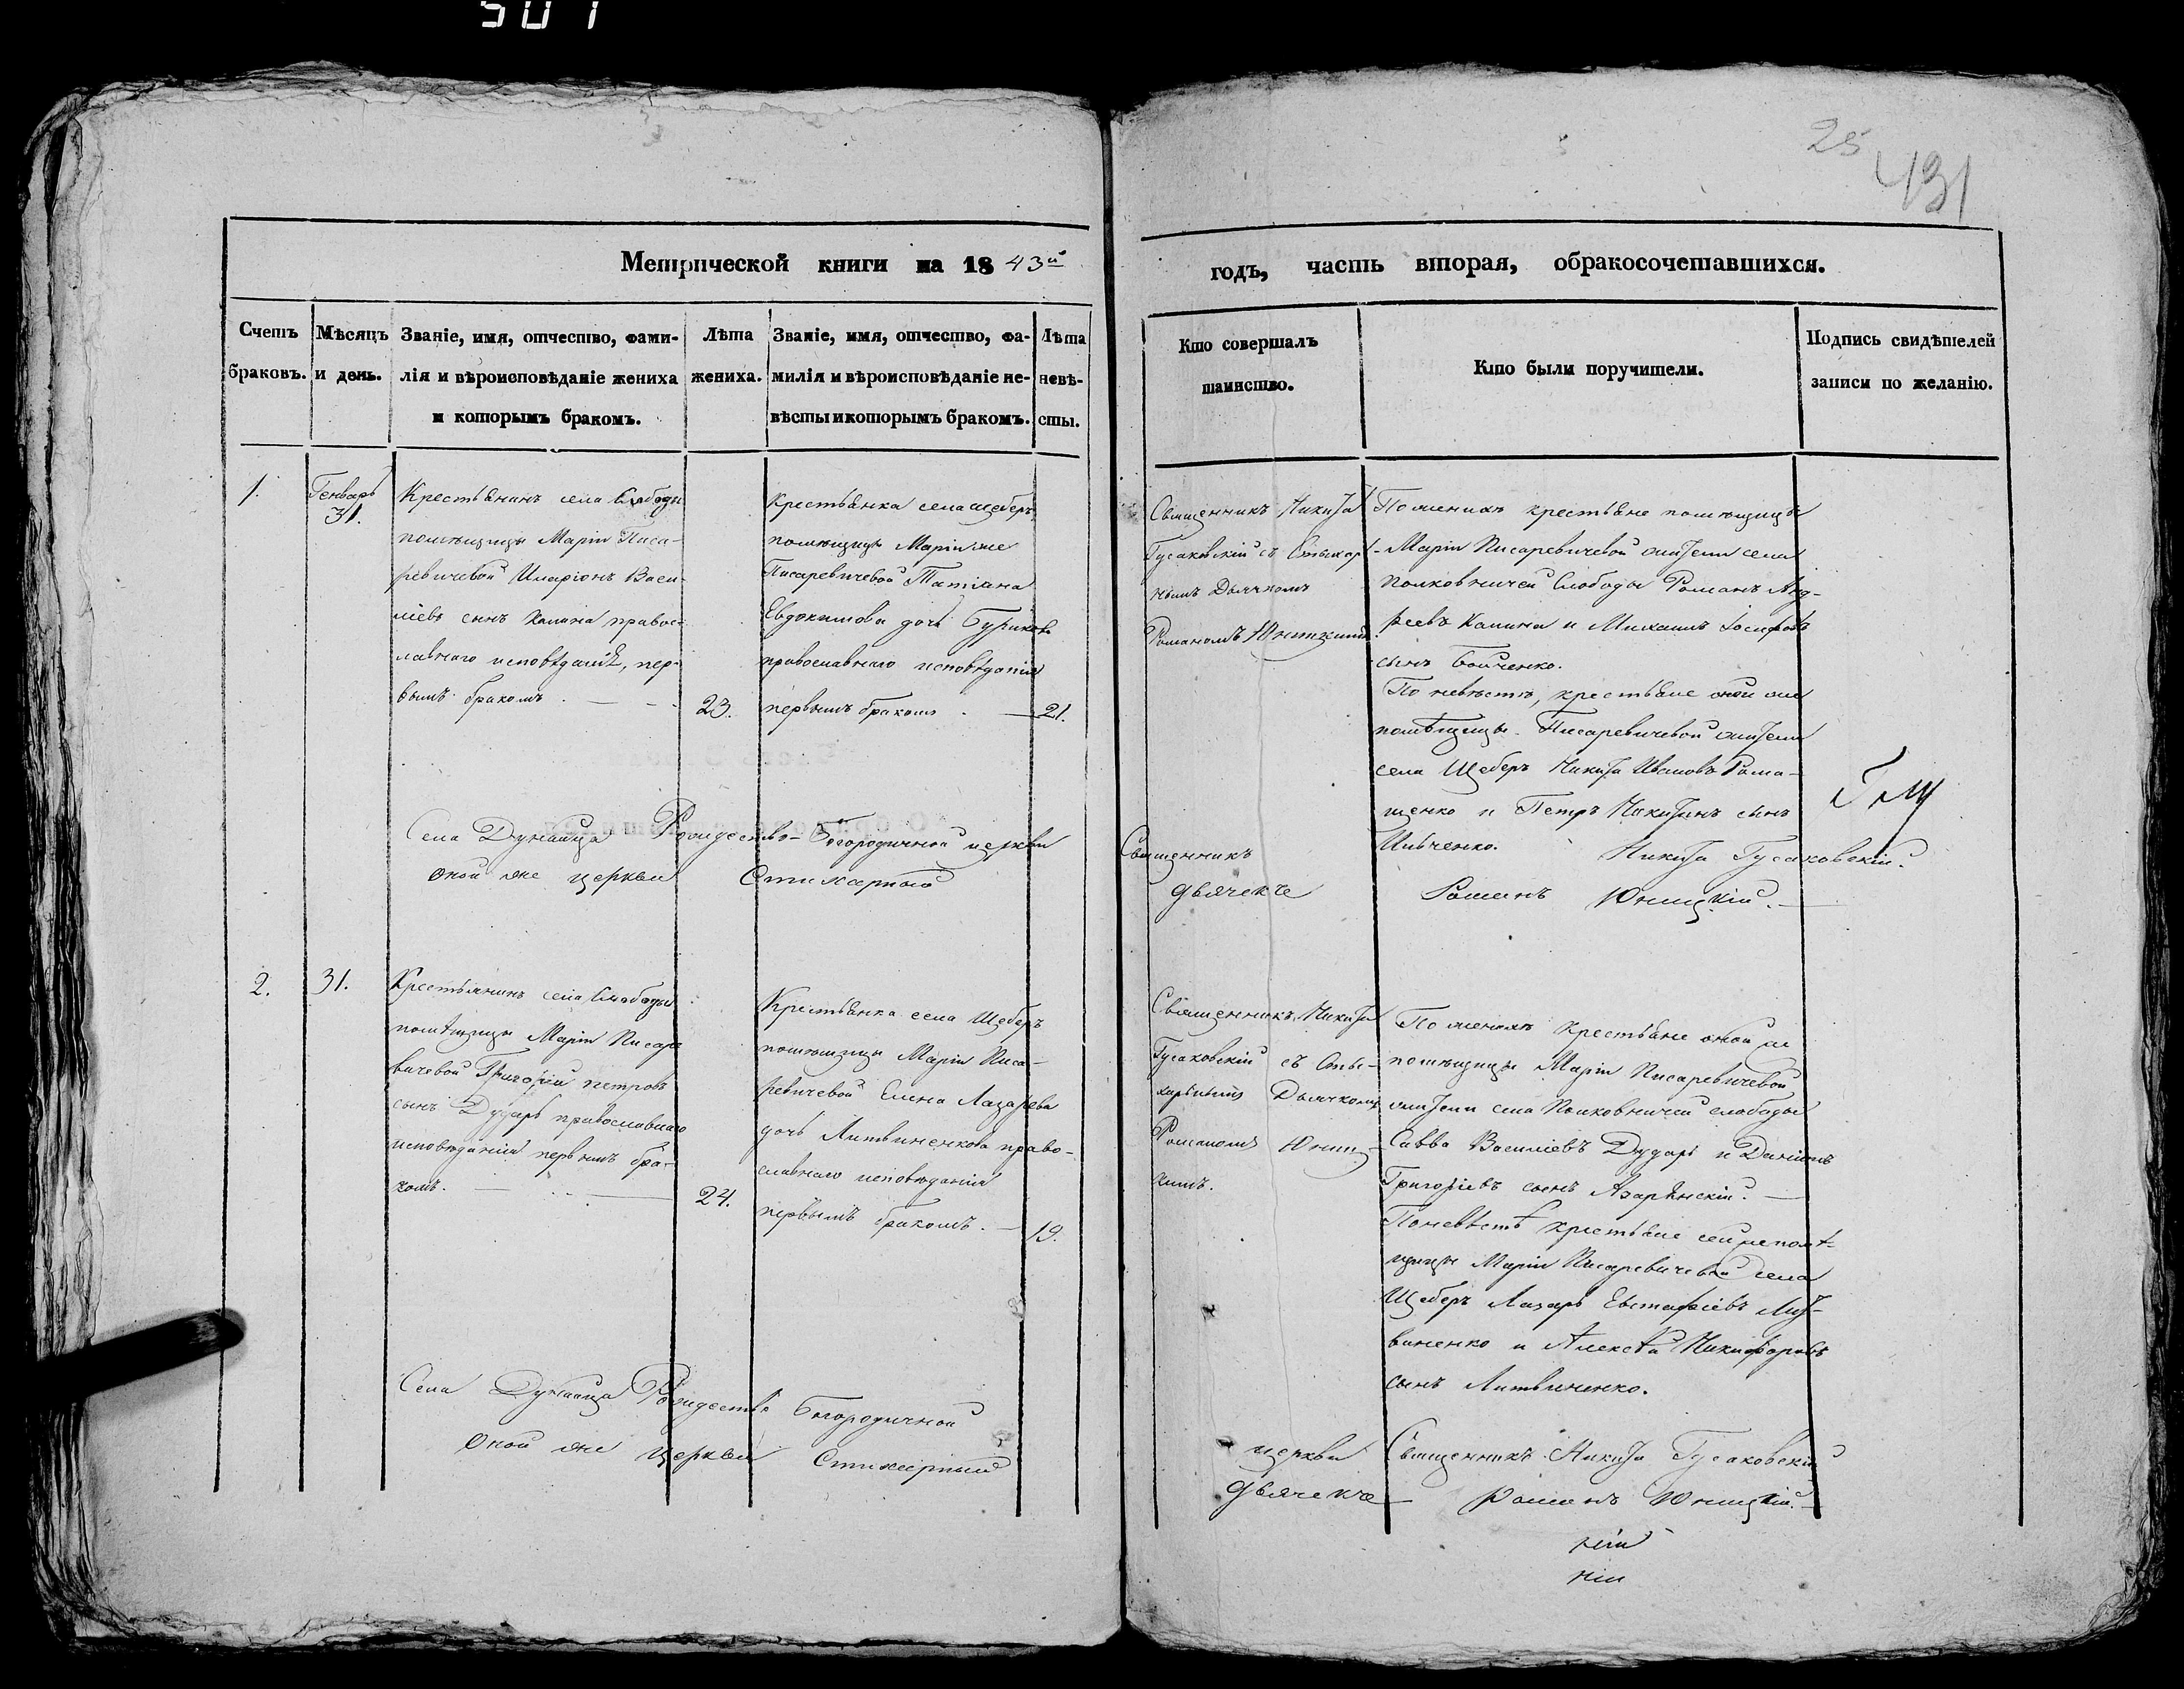 501
25
431
Метрической книги на 1843й
годъ, часть вторая, обракосочетавшихся.
Счетъ браковъ.
Мѣсяцъ и день.
Званіе, имя, отчество, фами-
лія и вѣроисповѣданіе жениха
и которымъ бракомъ.
Лѣта жениха.
Званіе, имя, отчество, фа-
милія и вѣроисповѣданіе не-
вѣсты и которымъ бракомъ.
Лѣта невѣ-
сты.
Кто совершалъ
таинство.
Кто были поручители.
Подпись свидѣтелей
записи по желанію.
1.
Генварь
31.
Крестьянинъ села Слободы
помѣщицы Маріи Писа-
ревичевой Иларіонъ Васи-
ліевъ сынъ Калина правос-
лавнаго исповѣданія, пер-
вымъ бракомъ.
23.
Крестьянка села Щебръ
помѣщицы Маріи же
Писаревичевой Татіана
Евдокимова дочь
православнаго исповѣданія
первымъ бракомъ
21.
Священникъ Никита
Гусаковскій съ Стыхар-
нымъ Дьячкомъ
Романомъ Юницкимъ.
По женихѣ крестьяне помѣщицы
Маріи Писаревичевой жители села
Полковничей Слободы Романъ Анд-
реевъ Калина и Михаилъ Іосифовъ
сынъ Бойченко.
По невѣстѣ, крестьяне оной же
помѣщицы Писаревичевой жители
села Щебръ Никита Ивановъ Рома-
щенко и Петръ Никитинъ сынъ
Села Дунайца Рождество-Богородичной церкви
Священникъ
Никита Гусаковскій.
Оной же церкви Стихарный
дьячекъ
Романъ Юницкій.
2.
31.
Крестьянинъ села Слободы
помѣщицы Маріи Писаре-
вичевой Григорій Петровъ
сынъ Дударь православнаго
исповѣданія первымъ бра-
комъ.
24.
Крестьянка села Щебръ
помѣщицы Маріи Писа-
ревичевой Елена Лазарева
дочь Литвиненкова право-
славнаго исповѣданія
первымъ бракомъ.
19.
Священникъ Никита
Гусаковскій съ Сты-
харнымъ Дьячкомъ
Романомъ Юниц-
кимъ.
По женихѣ крестьяне оной же
помѣщицы Маріи Писаревичевой
жители села Полковничей слободы
Савва Василіевъ Дударь и Даніилъ
Григоріевъ сынъ
По невѣстѣ крестьяне сей же помѣ-
щицы Маріи Писаревичевой села
Щебръ Лазарь Евстафіевъ Лит-
виненко и Алексѣй Никифоровъ
сынъ Литвиненко.
Села Дунайца Рождество Богородичной
церкви
Священникъ Никита Гусаковскій
Оной же церкви Стихарный
дьячекъ
Романъ Юницкій.